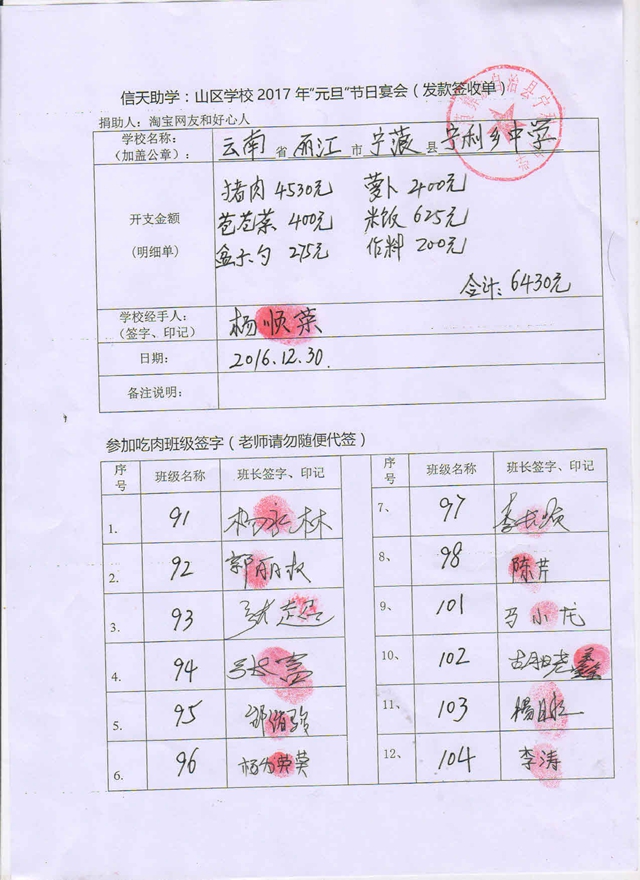 信天助学：山区学校2017年“元旦”节日宴会（发款签收单）
捐助人：淘宝网友和好心人
学校名称：
（加盖公章）：
云南省 丽江市 宁蒗县 宁利乡中学
开支金额
（明细单）
猪肉 4530元 萝卜 400元
苞苞菜 400元 米饭 625元
盒子勺 275元 作料 200元
合计：6430元
学校经手人：
（签字、印记）
杨顺荣
日期： 2016.12.30.
备注说明：
参加吃肉班级签字（老师请勿随便代签）
序号 班级名称 班长签字、印记 序号 班级名称 班长签字、印记
1. 91 杨永林 7、 97
2. 92 郭丽 8、 98 陈芹
3. 93 9、 101 马小龙
4. 94 张富 10、 102
5. 95 11、 103 杨
6. 96 杨 12、 104 李涛